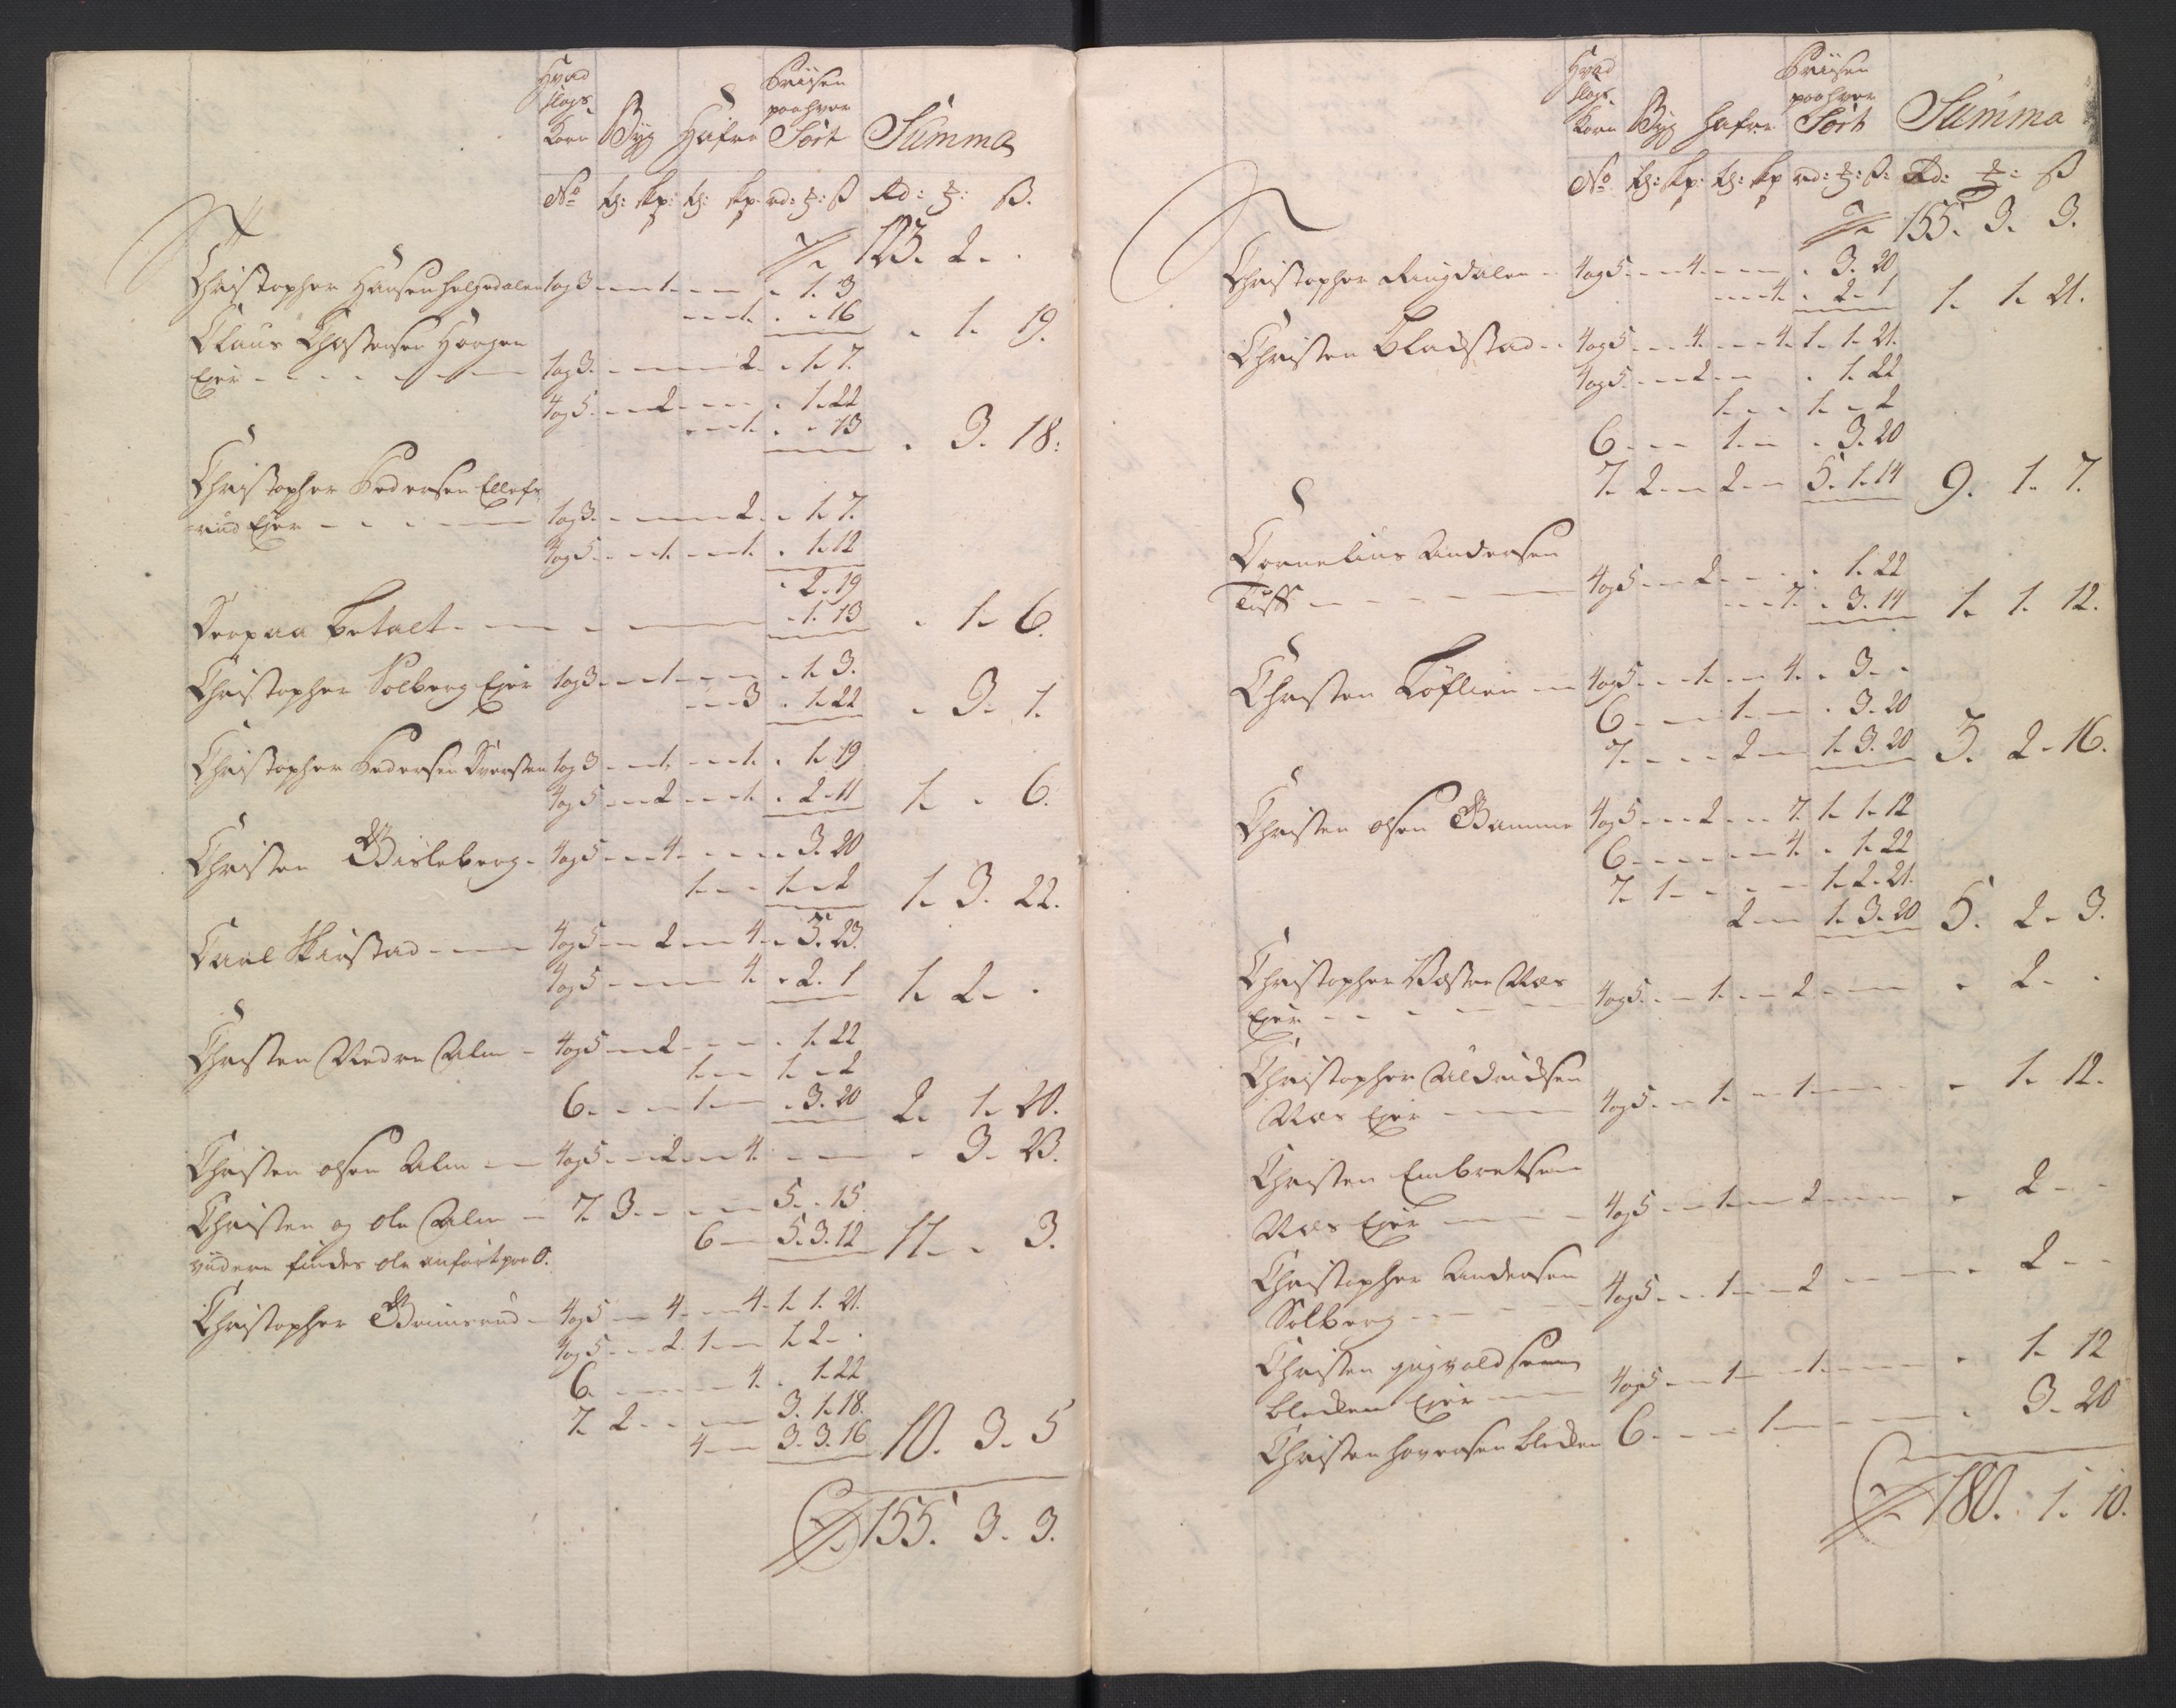 Hvad
slags
Korn Byg Hafre Priisen paa hver Sort Summa
No td: skp: td: skp. rd: ort: ß Rd: ort: ß.
123. 2. .
Christopher Hansen Helgedalen 1og3 1. . 1. 3
1. . . 16 . 1. 19.
Claus Chrestensen Horgen
Ejer 1og3. 2. . 1. 7.
4og5. 2 . 1. 22
1. . . 13 . 3. 18.
Christopher Pedersen Ellefs
rud Ejer 1og3. 2. . 1. 7.
4og5. 1. 1. . 1. 12
. 2. 19
Derpaa Betalt . 1. 13 . 1. 6.
Christopher Solberg Ejer 1og3 1. . 1. 3.
3 . 1. 22 . 3. 1.
Christopher Pedersen Sversten 1og3 1. 1. . 1. 19
4og5 2 1. . 2. 11 1. . 6.
Christen Gisleberg 4og5 4. . 3. 20
1. 1. . 2 1. 3. 22.
Carl Skirstad 4og5 2 4. . 3. 23.
4og5 4. . 2. 1 1. 2. .
Christen Nedre Alm 4og5 2 . 1. 22
1. 1. . 2
6. 1. . 3. 20 2. 1. 20.
Christen olsen Alm 4og5 2 4. . 3. 23.
Christen og ole Alm 7. 3. 5. . 15.
6 5. 3. 12 11. . 3.
videre findes ole anført paa O.
Christopher Grimsrud 4og5 4. 4. 1. 1. 21.
4og5 2. 1. 1. 2. .
6. 4. . 1. 22
7. 2. 3. 1. 18.
4. 3. 3. 16 10. 3. 5
155. 3. 3.
Hvad
slags
Korn Byg Hafre Priisen paa hver Sort Summa
No td: skp: td: skp rd: ort: ß: Rd: ort: ß
155. 3. 3.
Christopher Ringdalen 4og5 4. . 3. 20
4. . 2. 1 1. 1. 21.
Christen Blakstad 4og5 4. 4. 1. 1. 21.
4og5. 2 . 1. 22
1. 1. . 2
6 1. . 3. 20
7. 2. 2. 5. 1. 14 9. 1. 7.
Cornelius Andersen
Tuff 4og5 2 . 1. 22
7. . 3. 14 1. 1. 12.
Christen Løflien 4og5 1. 4. . 3. .
6 1. . 3. 20
7. 2 1. 3. 20 3. 2. 16.
Christen olsen Gamme 4og5 2 7. 1. 1. 12
6 4. . 1. 22
7. 1 1. 2. 21.
2 1. 3. 20 5. 2. 3.
Christopher Vestre Næs
Ejer 4og5. 1. 2. . 2. .
Christopher Aldridsen
Næs Ejer 4og5. 1. 1. . 1. 12.
Christen Embretsen
Næs Ejer 4og5 1. 2. . 2. .
Christopher Andersen
Solberg 4og5 1. 2 . 2. .
Christen Yngvoldsen
Blekken Ejer 4og5 1. 1. . 1. 12
Christen Hoversen Blekken 6. 1. . 3. 20
180. 1. 10.